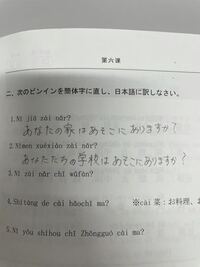 第六课
二、次のピンインを簡体字に直し、日本語に訳しなさい。
1.Nǐ jiā zài nǎr?
あなたの家はあそこにありますか?
2.Nǐmen xuéxiào zài nǎr?
あなたたちの学校はあそこにありますか?
3.Nǐ zài nǎr chī wǔfàn?
4.Shítáng de cài hǎochī ma? ※cài 菜:お料理、お
5.Nǐ yǒu shíhou chī Zhōngguó cài ma?